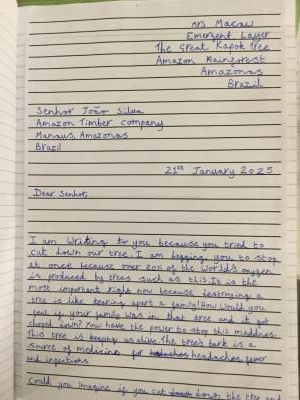 Mrs Macaw
Emergent Layer
The Great Kapok Tree
Amazon Rainforest
Amazonas
Brazil
Senhor João Silva
Amazon Timber Company
Manaus, Amazonas
Brazil
21st January 2025
Dear Senhor,
I am writing to you because you tried to
cut down our tree. I am begging you to stop
at once because over 20% of the world's oxygen
is produced by trees such as this. It is the
most important right now because destroying a
tree is like tearing apart a family! How would you
feel if your family was in that tree and it got
choped down? You have the power to stop this madness.
This tree is keeping us alive. The tree's bark is a
source of medicine for headaches, fever
and infections.
Could you imagine if you cut down the tree and